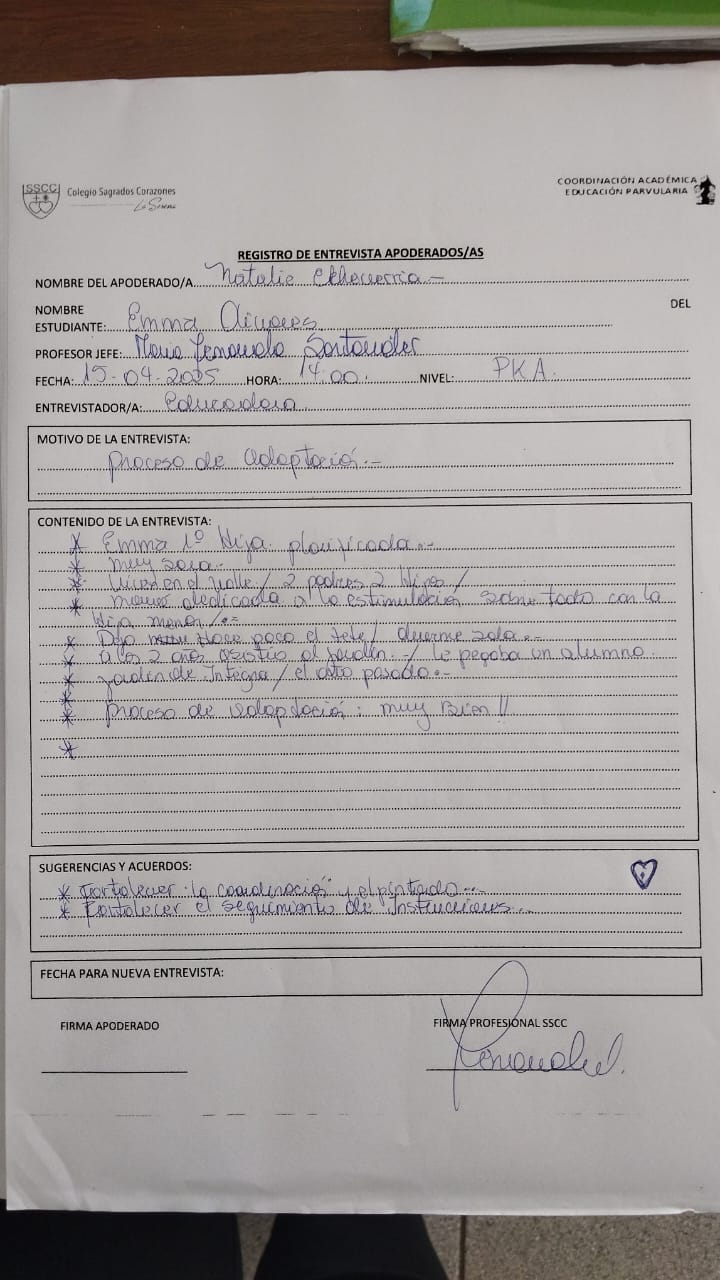 SSCC
Colegio Sagrados Corazones
La Serena
COORDINACIÓN ACADÉMICA
EDUCACIÓN PARVULARIA
REGISTRO DE ENTREVISTA APODERADOS/AS
NOMBRE DEL APODERADO/A Natalie Etcheverria
NOMBRE DEL
ESTUDIANTE: Emma Olivares
PROFESOR JEFE: Maria Fernanda Santander
FECHA: 15-04-2025 HORA: 14:00. NIVEL: PKA.
ENTREVISTADOR/A: Educadora
MOTIVO DE LA ENTREVISTA:
Proceso de adaptación.-
CONTENIDO DE LA ENTREVISTA:
* Emma 1º Hija planificada.-
* Muy sana.
* en el Valle / 2 padres 2 Hijos /
* dedicada a la estimulación sobre todo con la
Hija menor /.=
* Dejo Hace poco el tete / duerme sola.-
* A los 2 años asistio al Jardín.- / le pegaba un alumno.
* Jardín de Integra / el año pasado.-
* Proceso de adaptación: muy Bien!!
*
SUGERENCIAS Y ACUERDOS:
* Fortalecer la coordinación y el pintado...
* Fortalecer el seguimiento de Instrucciones..
FECHA PARA NUEVA ENTREVISTA:
FIRMA APODERADO FIRMA PROFESIONAL SSCC